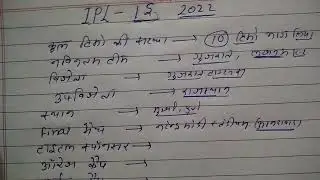 IPL - 15 2022
कुल टिमो की संख्या → 10 टिमो भाग लिया
नविनतम टीम → गुजरात, लखनऊ
विजेता → गुजरात टाइटन्स
उपविजेता → राजस्थान
स्थान → मुम्बई, पुणे
Final मैच → नरेन्द्र मोदी स्टेडियम (अहमदाबाद)
टाइटल स्पॉनसर →
ऑरेंज कैप →
कैप →